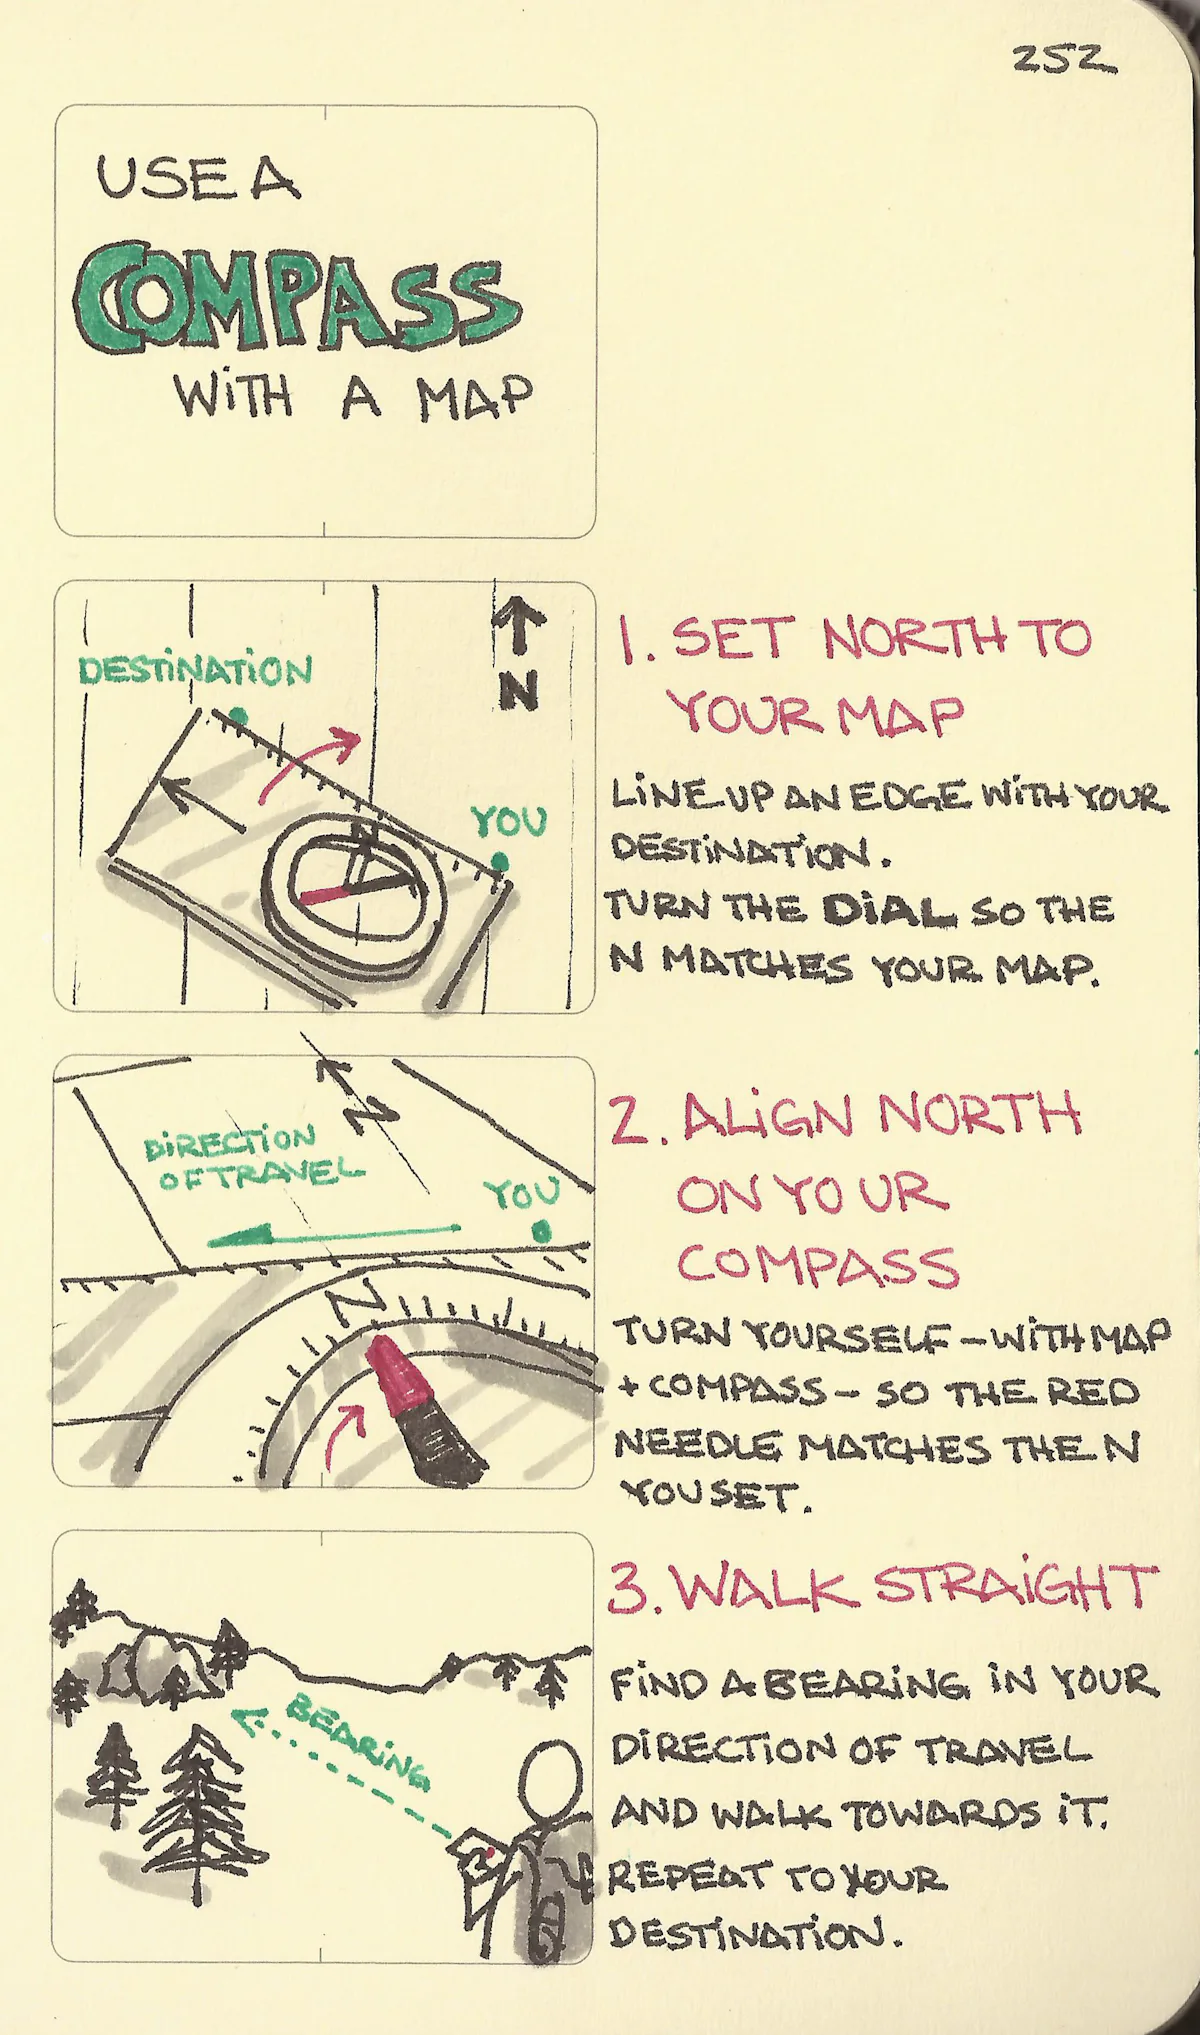 252
USE A
COMPASS
WiTH A MAP
DESTiNATiON
N
YOU
N
1. SET NORTH TO
YOUR MAP
LiNE UP AN EDGE WiTH YOUR
DESTiNATiON.
TURN THE DiAL SO THE
N MATCHES YOUR MAP.
N
DiRECTiON
OF TRAVEL
YOU
N
2. ALiGN NORTH
ON YOUR
COMPASS
TURN YOURSELF - WiTH MAP
+ COMPASS - SO THE RED
NEEDLE MATCHES THE N
YOU SET.
BEARiNG
3. WALK STRAiGHT
FiND A BEARiNG iN YOUR
DiRECTiON OF TRAVEL
AND WALK TOWARDS iT.
REPEAT TO YOUR
DESTiNATiON.